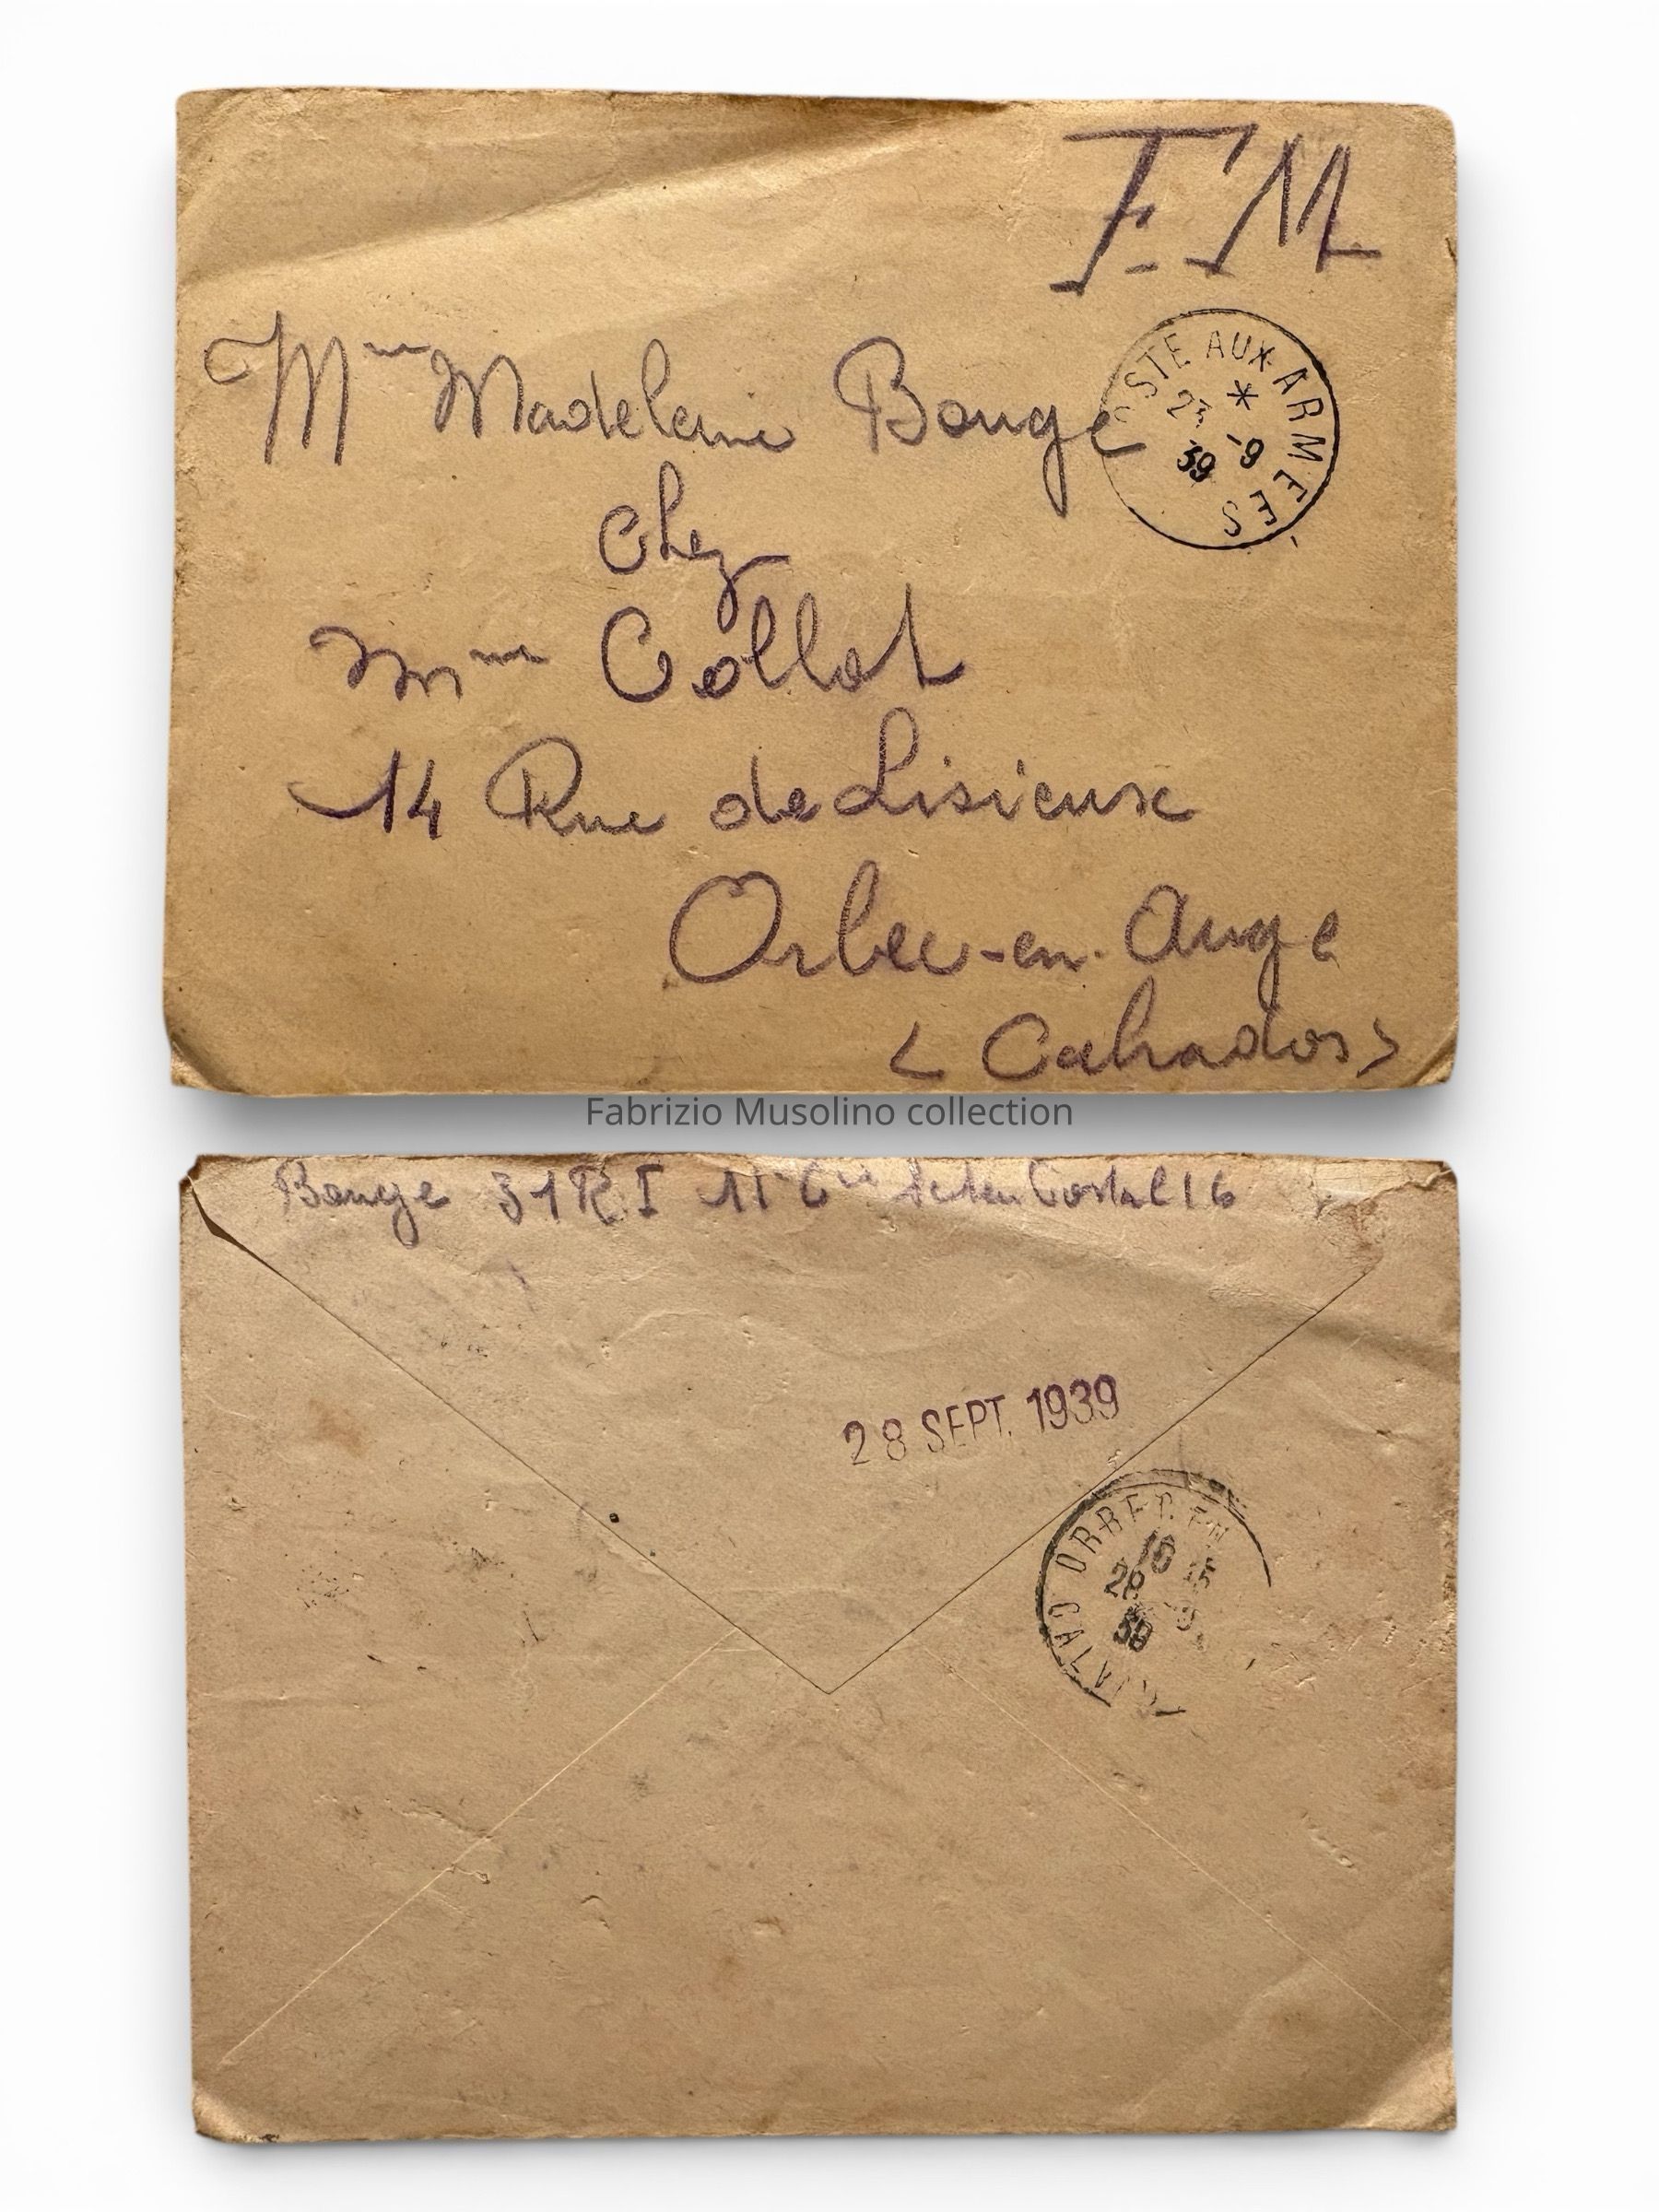 F.M
Mme Madeleine Bouge
POSTE AUX ARMÉES
*
23 -9
39
chez
Mme Collot
14 Rue de Lisieux
Orbec-en-Auge
<Calvados>
Fabrizio Musolino collection
Bouge 31 R I 11e Cie Secteur Postal 16
28 SEPT. 1939
ORBEC EN
CALVADOS
28 -9
39